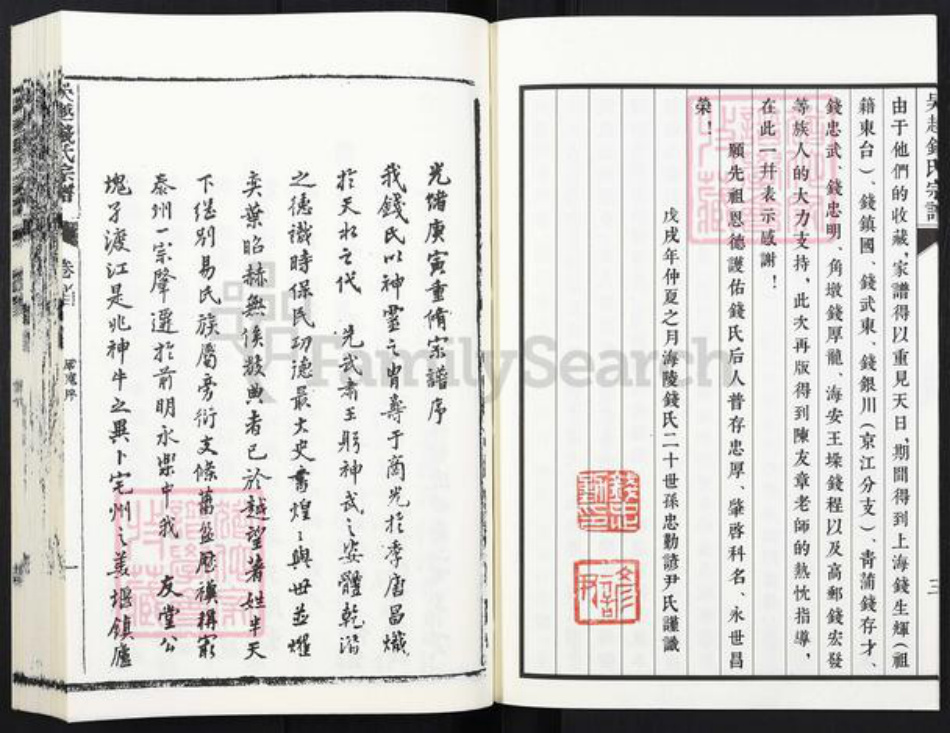 吳越錢氏宗譜
由于他們的收藏,家譜得以重見天日,期間得到上海錢生輝(祖
籍東台)、錢鎮國、錢武東、錢銀川(京江分支)、青蒲錢存才、
錢忠武、錢忠明、角墩錢厚龍、海安王垛錢程以及高郵錢宏發
等族人的大力支持,此次再版得到陳友章老師的熱忱指導,
在此一并表示感謝!
願先祖恩德護佑錢氏后人普存忠厚、肇啓科名、永世昌
榮!
戊戌年仲夏之月海陵錢氏二十世孫忠勤諺尹氏謹識
三
錢忠勤印
諺尹
光緒庚寅重脩宗譜序
我錢氏以神靈之胄壽于商光於季唐昌熾
於天水之代 先武肅王躬神武之姿體乾潛
之德識時保民功德最大史書煌〻與世並燿
奕葉昭赫無俟數典者已於越望著姓半天
下継別易民族屬旁衍支條蕃盛歷禩稱冣
泰州一宗肇遷於前明永樂中我 友堂公
塊孑渡江是兆神牛之異卜宅州之姜堰鎮廬
吳越錢氏宗譜
卷
一
FamilySearch